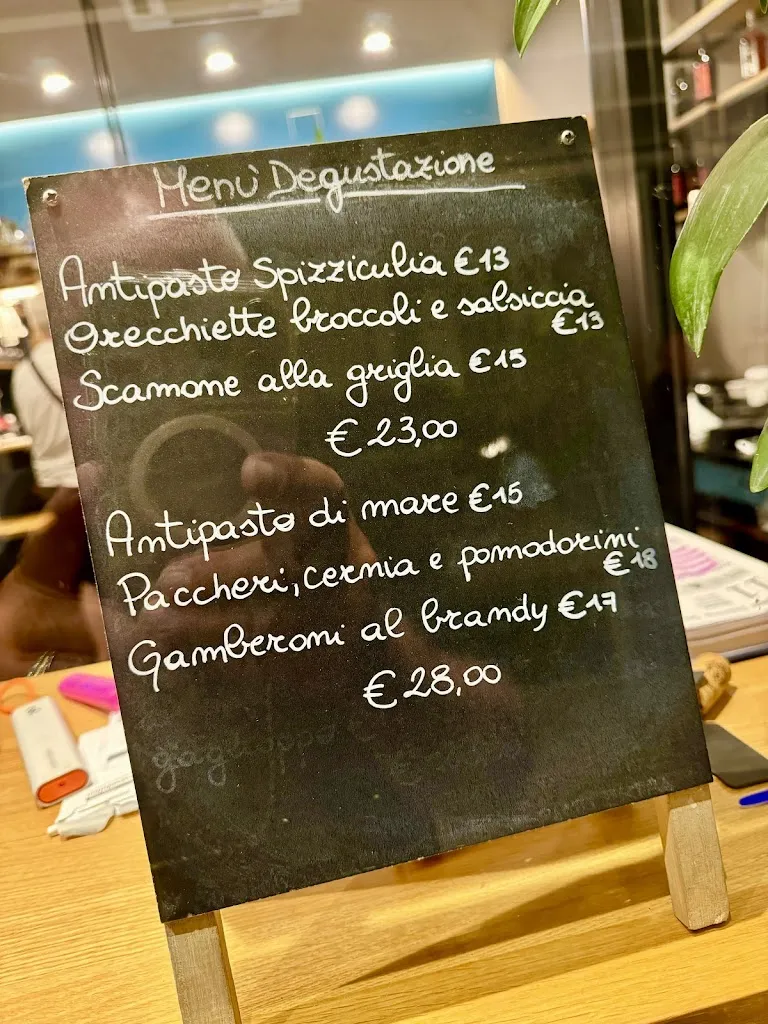 Menù Degustazione
Antipasto Spizziculia €13
Orecchiette broccoli e salsiccia
€13
Scamone alla griglia €15
€23,00
Antipasto di mare €15
Paccheri, cernia e pomodorini
€18
Gamberoni al brandy €17
€28,00